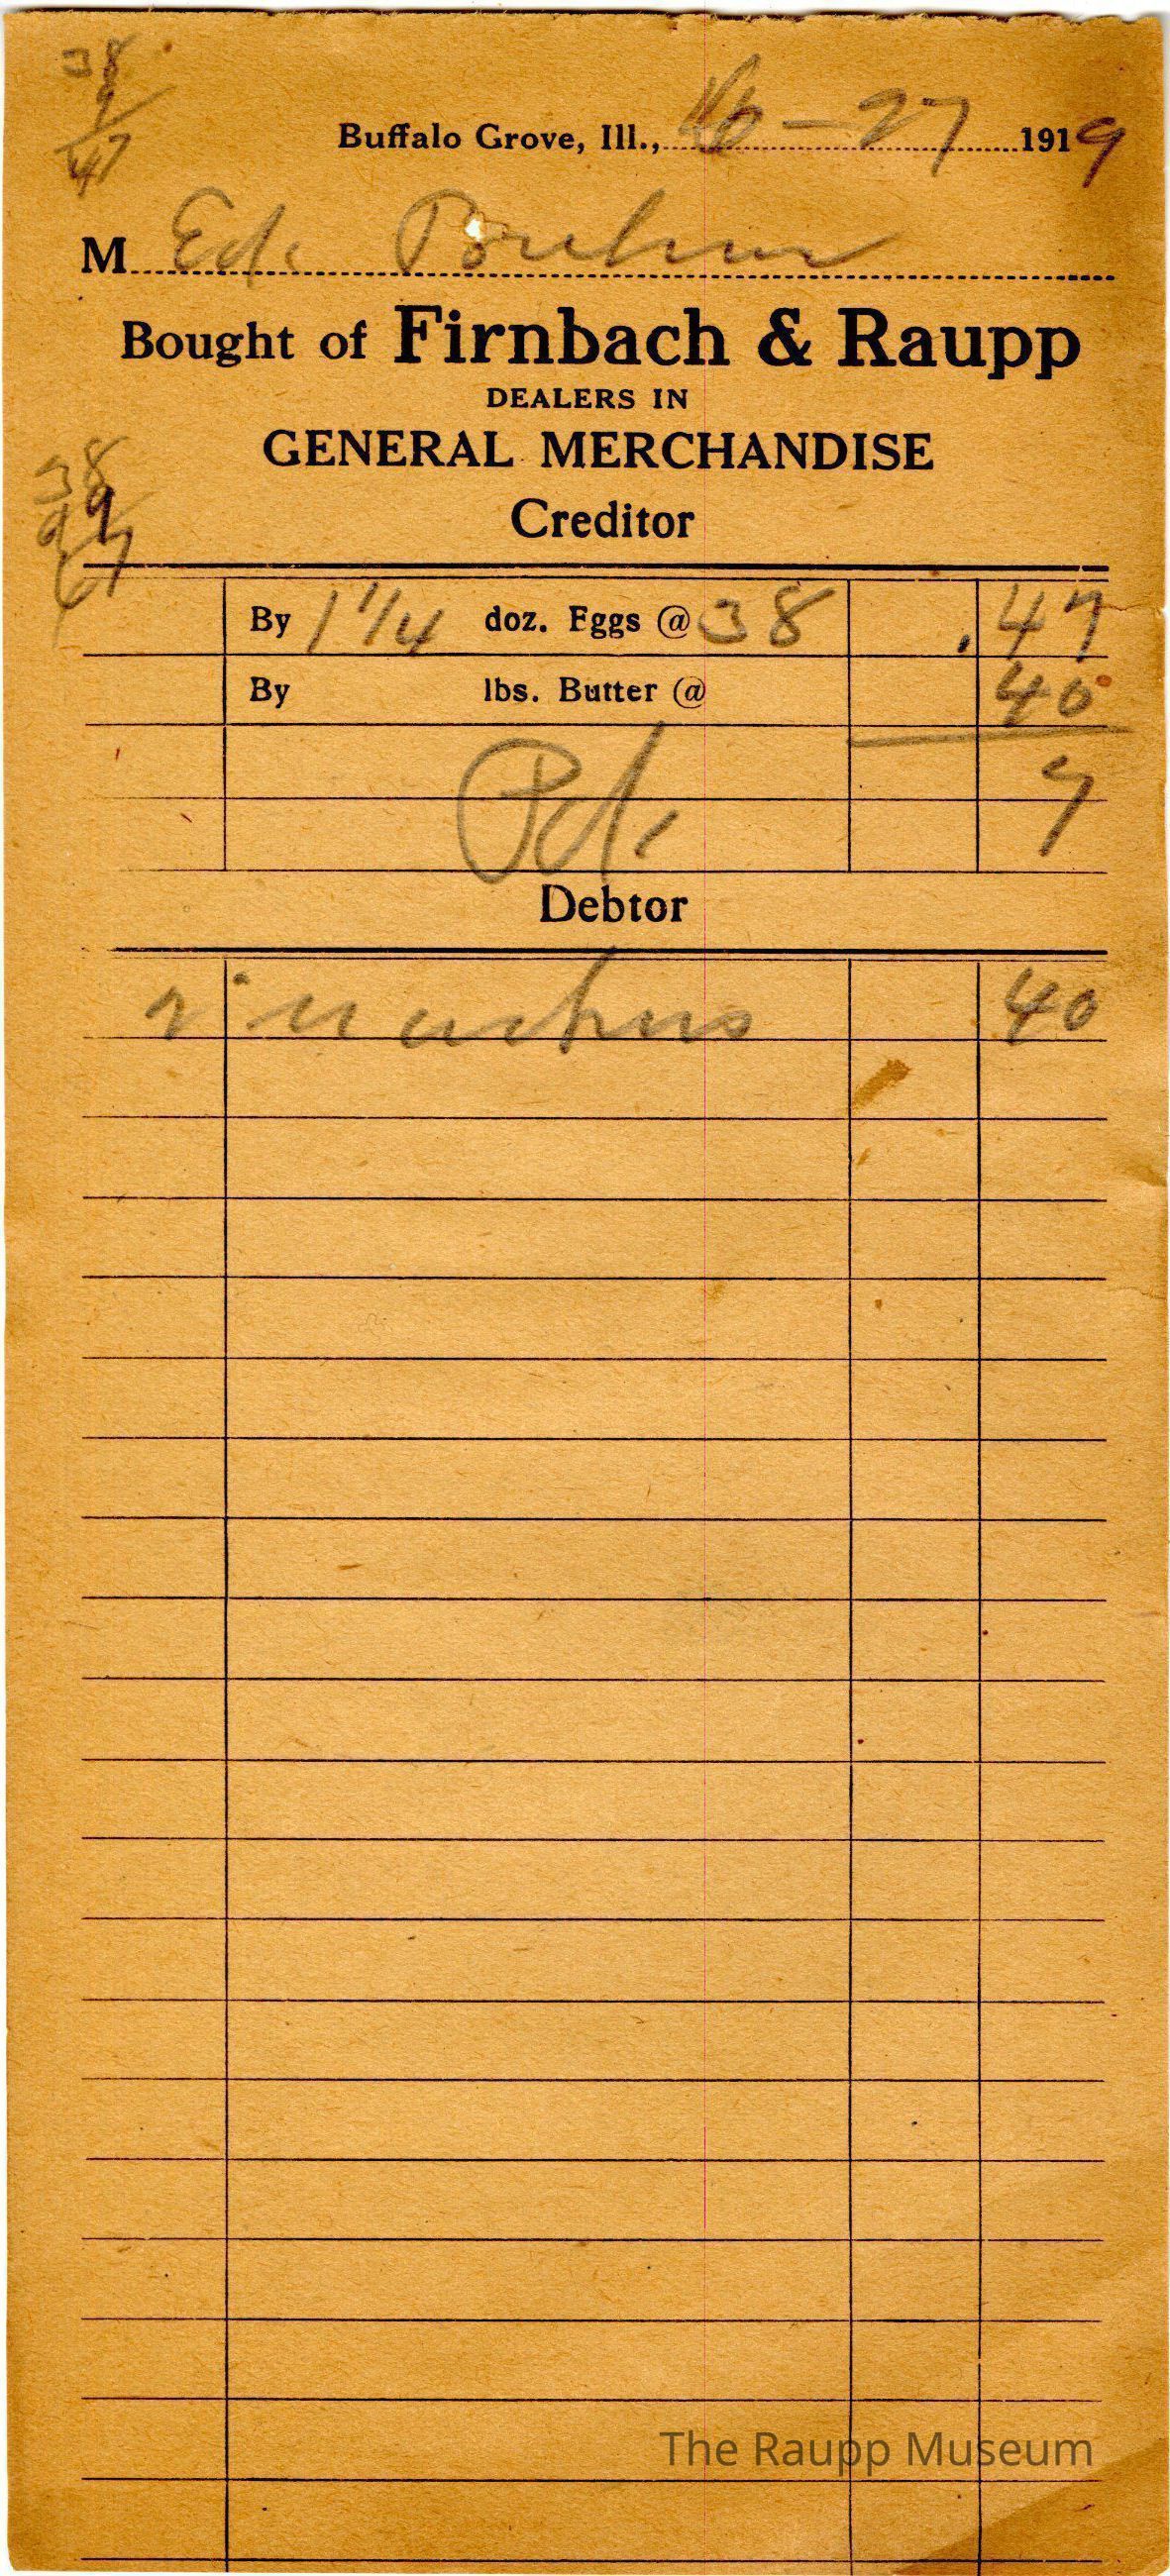 38
9
47
Buffalo Grove, Ill., 6-27 1919
M Ed.
Bought of Firnbach & Raupp
DEALERS IN
GENERAL MERCHANDISE
Creditor
38
9
By 1 1/4 doz. Eggs @ 38 .47
By lbs. Butter @ 40
7
Pd.
Debtor
2 40
The Raupp Museum